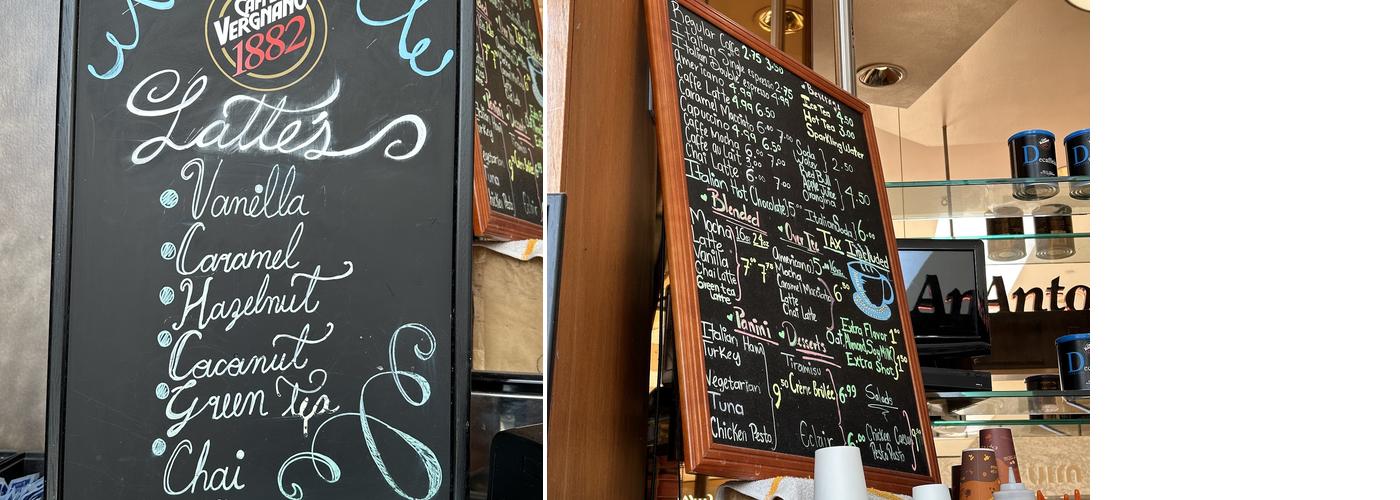 CAFFÈ
VERGNANO
1882
Latte's
Vanilla
Caramel
Hazelnut
Coconut
Green Tea
Chai
Regular Coffe 2.75 3.50
Italian Single espresso 2.75
Italian Double espresso 4.99
Americano 4.99
Caffe Latte 4.99 6.50
Caramel Macchiato 6.00 7.00
Capuccino 4.99 6.50
Caffe Mocha 6.00 7.00
Caffe au Lait 3.00
Chai Latte 6.00 7.00
Italian Hot Chocolate 5
Ice Tea 4.50
Hot Tea 3.00
Sparkling Water
Soda
Water 2.50
Red Bull
Apple Juice
Orangina 4.50
Italian Soda 6.00
TAX Included
Blended
16oz 24oz
Mocha
Latte
Vanilla
Chai Latte
Green tea
Latte
7 7
Over Ice
Americano 5
Mocha
Caramel Macchiato
Latte
Chai Latte
6.50
Extra Flavor 1
Oat, Almond, Soy Milk
Extra Shot 1.50
Panini
Italian Ham
Turkey
Vegetarian
Tuna
Chicken Pesto
9.50
Desserts
Tiramisu
Crème Brûlée 6.99
Eclair 6.00
Salads
Chicken Caesar
Pesto Pasta
Decaffe
An Anto